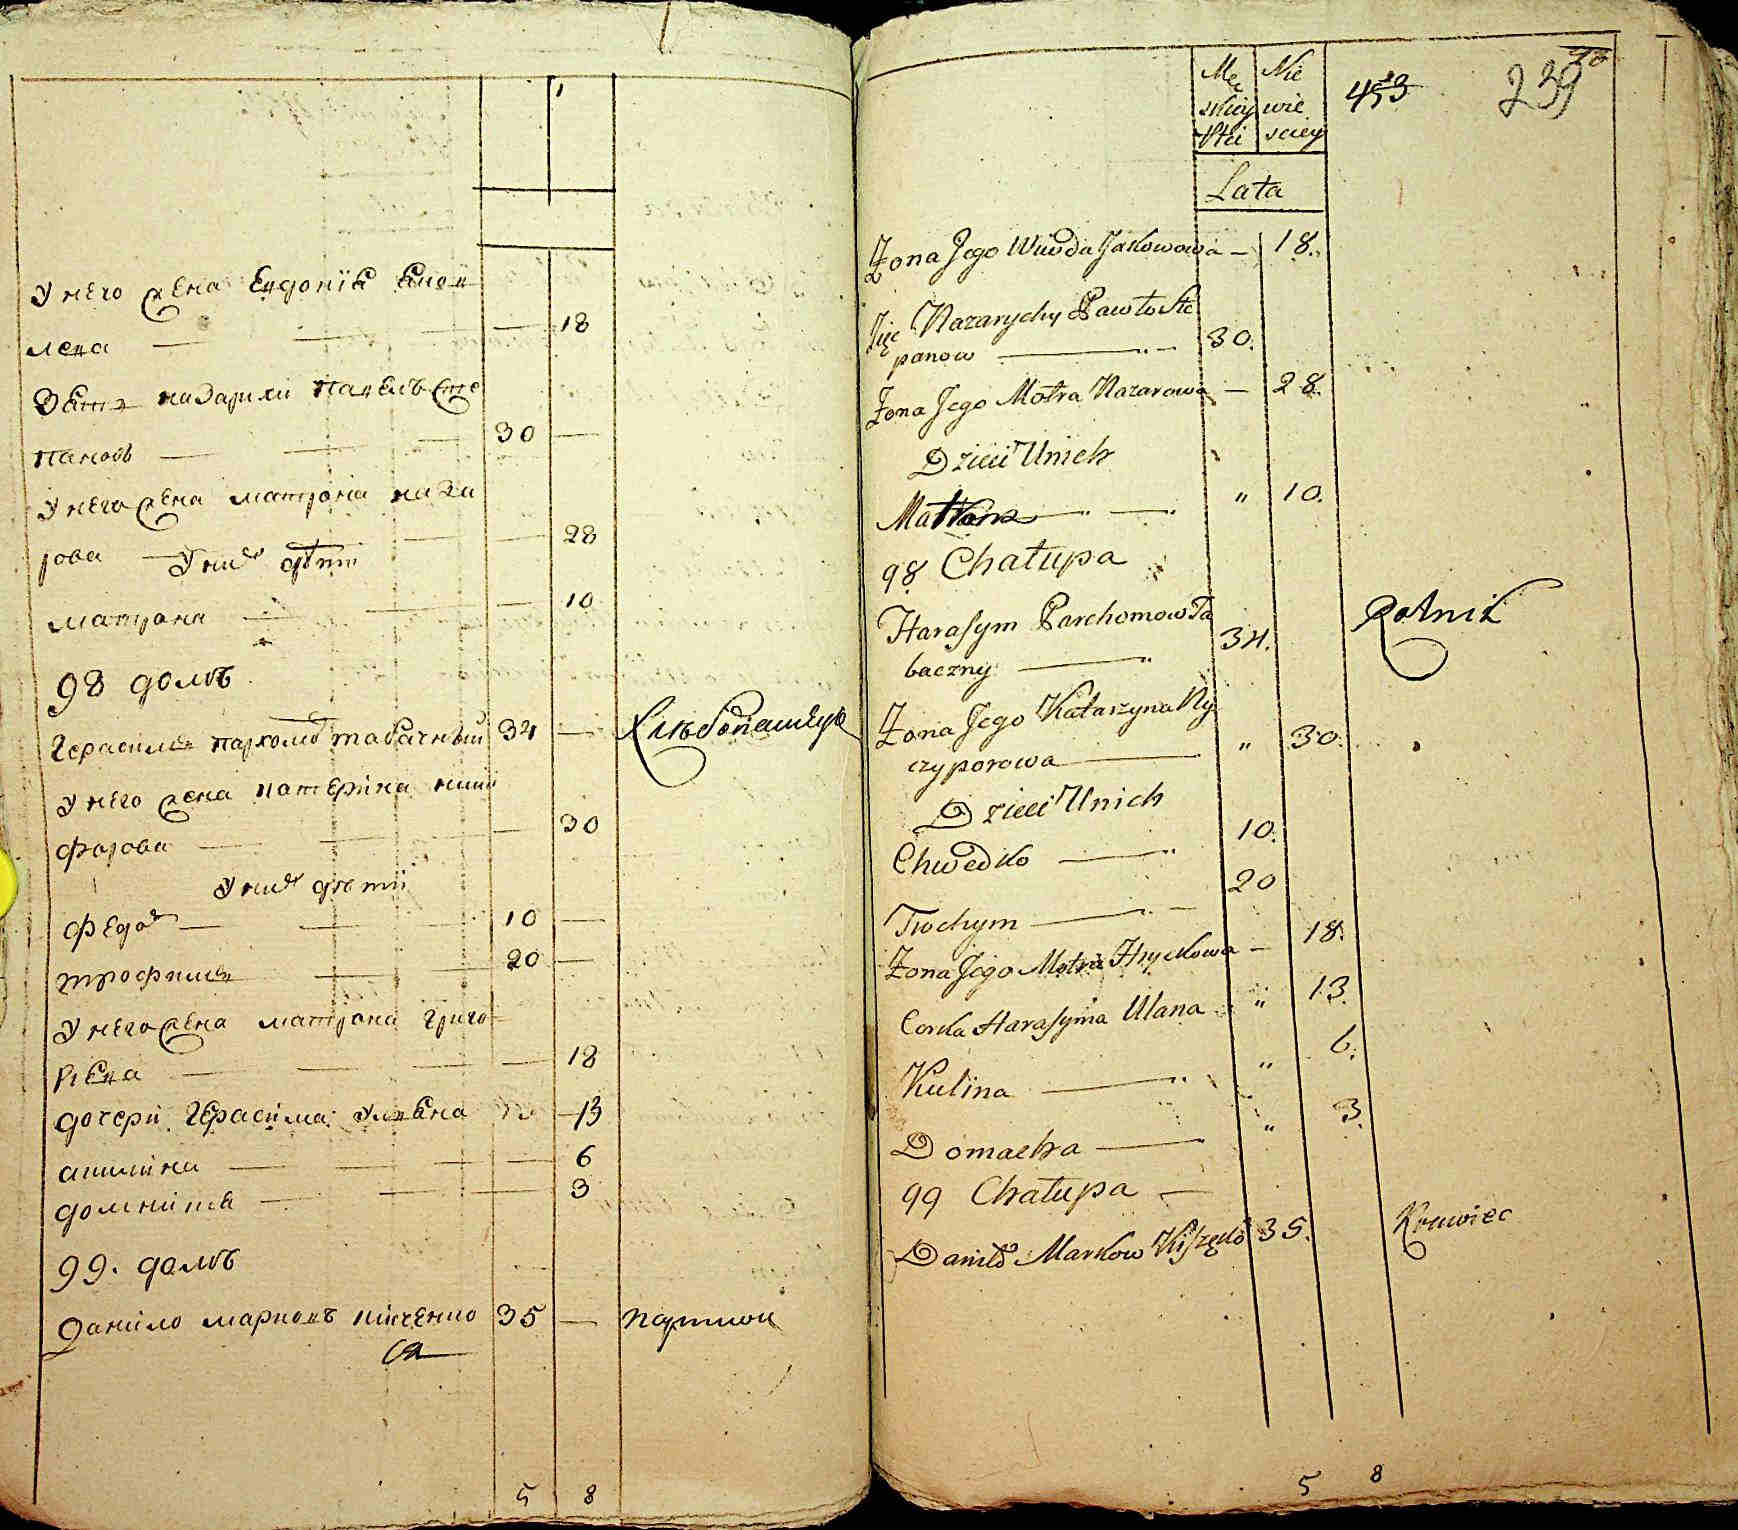 У него жена Евдокіѣ
лева — 18
Зять Назарихи Павелъ Сте
пановъ — 30 —
У него жена Матрона Наза
рова — 28
У них дѣти
Матрона — 10
98 домъ
Герасимъ Пархомов Табачный 34 — Хлебопашец
У него жена Катерина Ники
форова — 30
У них дѣти
Федор — 10 —
Трофимъ — 20 —
У него жена Матрона Григо
риева — 18
дочери Герасима Ульѣна — 13
Акилина — 6
Домникія — 3
99. домъ
Данило Марковъ Кишенко 35 — портной
5 8
Mę Nie
skiey wie
Płci sciey
453 239
Lata
Żona Jego Jakowowa — 18.
Zięć Nazarychy Pawło Ste
panow — 30.
Żona Jego Motra Nazarowa — 28.
Dzieci Unich
Matrona — " 10.
98 Chałupa
Harasym Parchomow Ta
baczny — 34. Rolnik
Żona Jego Katarzyna Ny
czyporowa — " 30.
Dzieci Unich
Chwedko — 10.
Trochym — 20
Żona Jego Motra Hryckowa — 18.
Corka Harasyma Ulana " 13.
Kulina — " 6.
Domacha — " 3.
99 Chałupa —
Daniło Markow Kiszęko 35. Krawiec
5 8